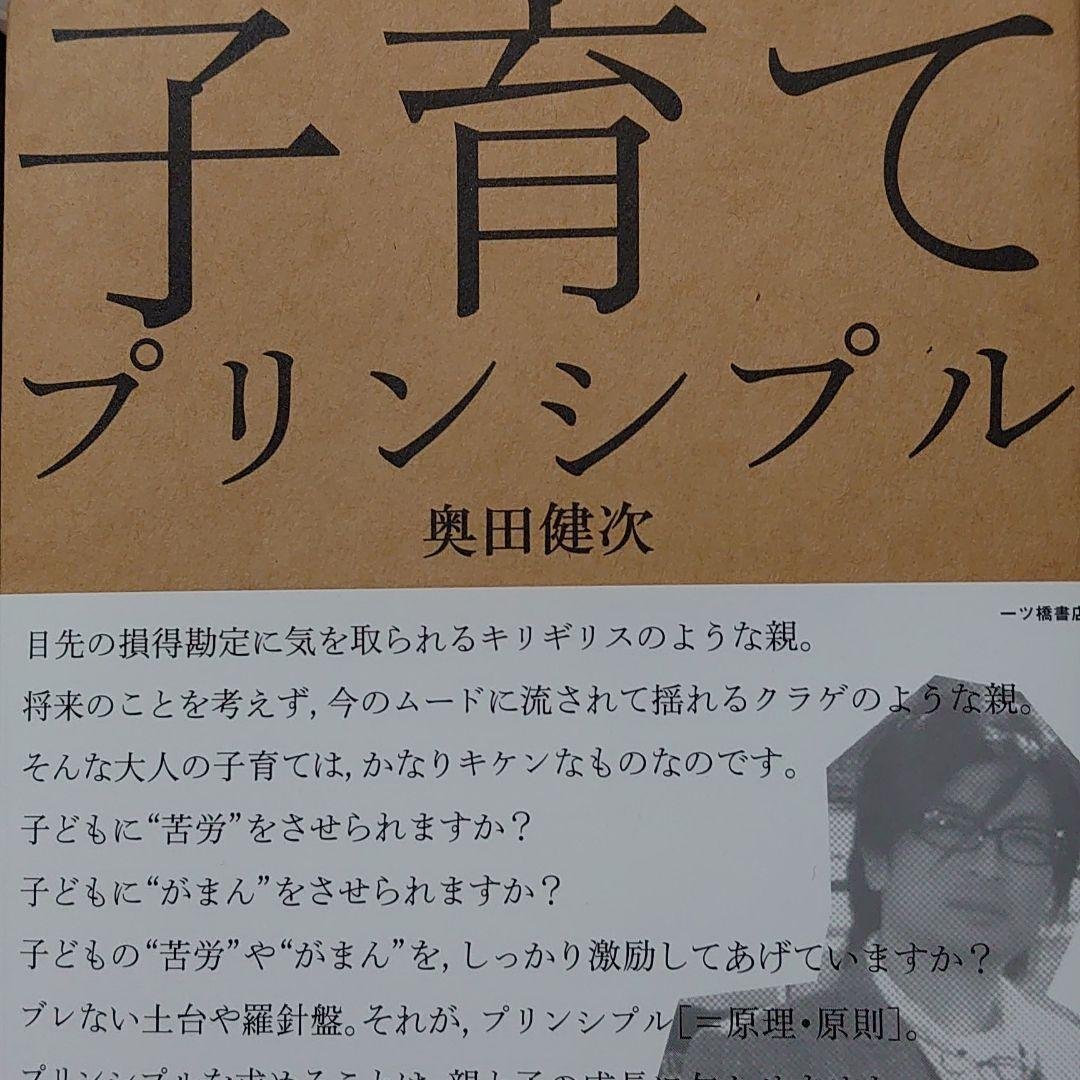 子育て
プリンシプル
奥田健次
一ツ橋書店
目先の損得勘定に気を取られるキリギリスのような親。
将来のことを考えず,今のムードに流されて揺れるクラゲのような親。
そんな大人の子育ては,かなりキケンなものなのです。
子どもに“苦労”をさせられますか？
子どもに“がまん”をさせられますか？
子どもの“苦労”や“がまん”を,しっかり激励してあげていますか？
ブレない土台や羅針盤。それが,プリンシプル[＝原理・原則]。
プリンシプルを求めることは,親と子の成長に